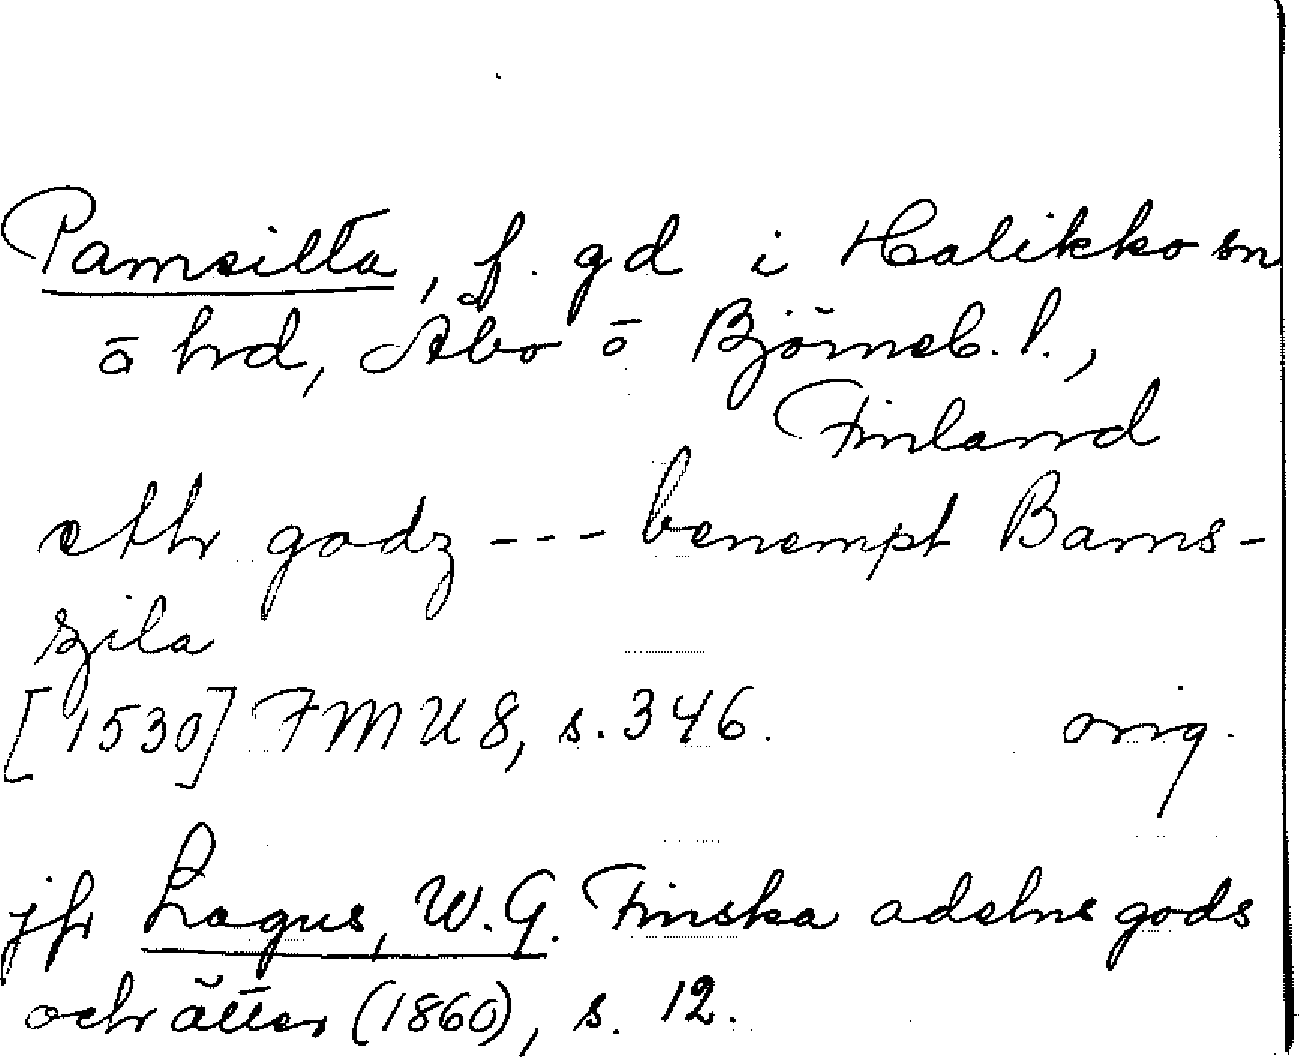 Pamsilta, f. gd i Halikko sn
o hd, Åbo o Björneb. l.,
Finland
etth godz --- benempt Bams-
zila
[1530] FMU 8, s. 346. orig.
jfr Lagus, W.G. Finska adelns gods
och ätter (1860), s. 12.